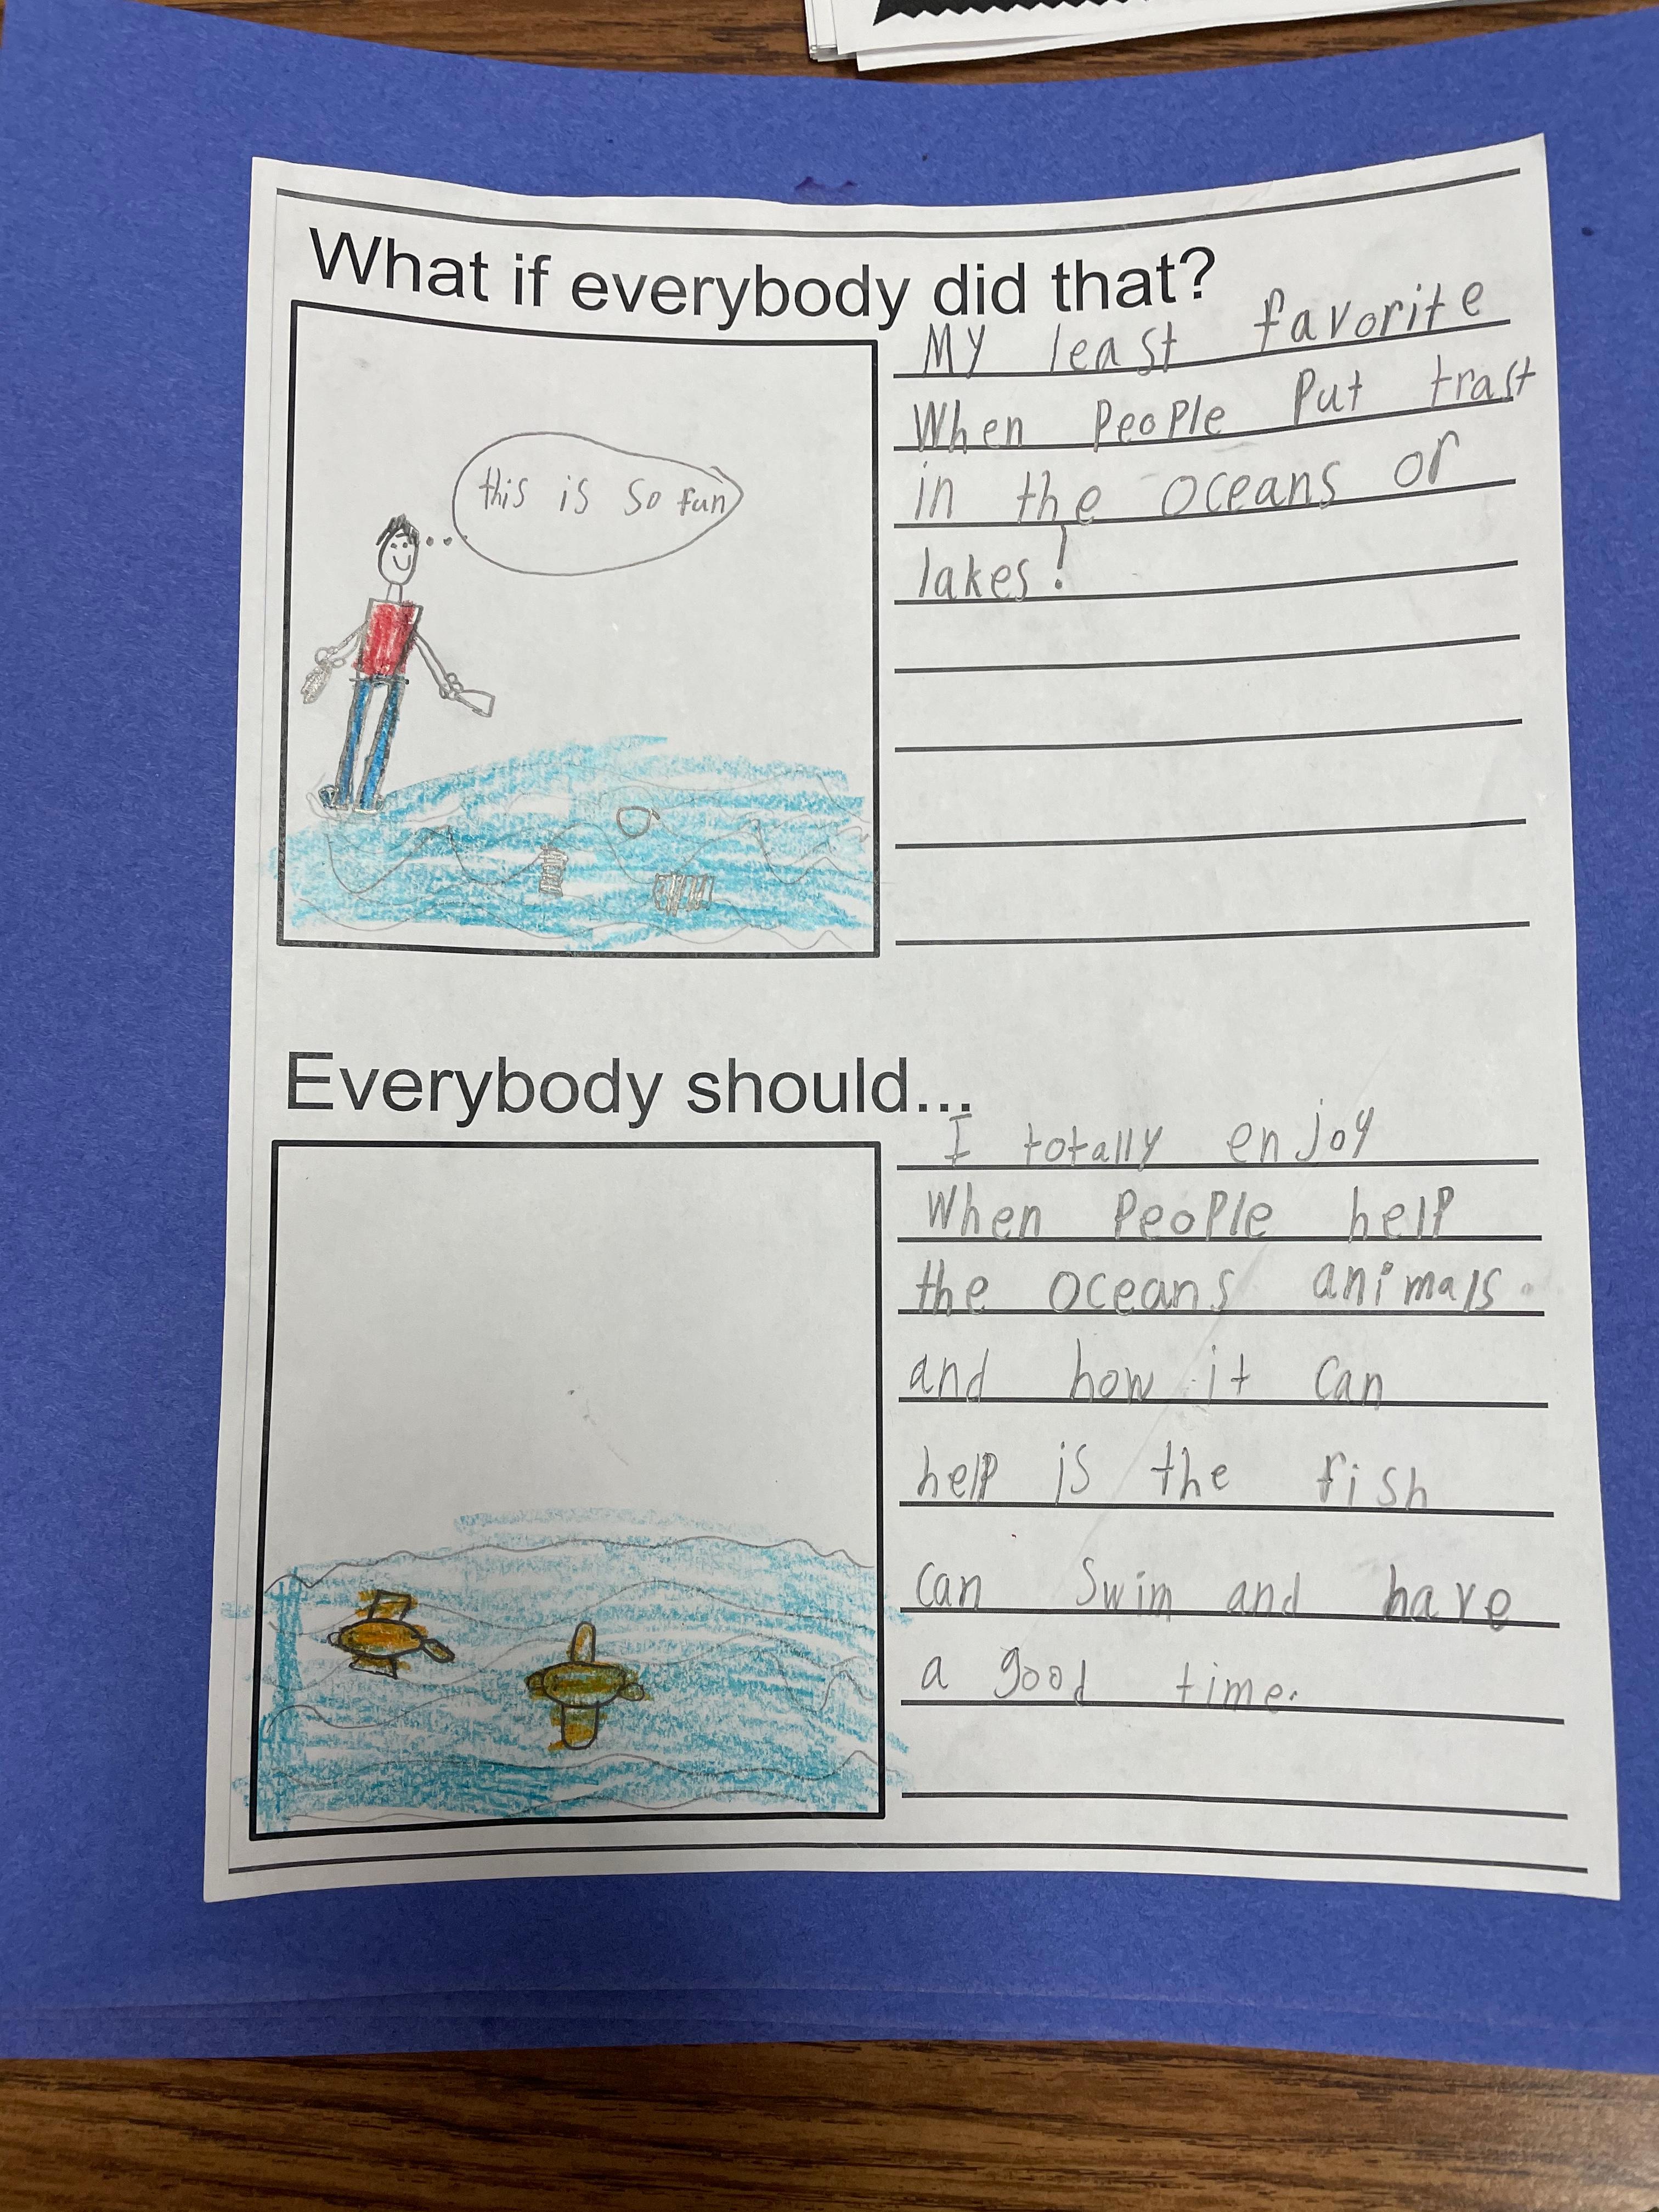 What if everybody did that?
this is so fun
My least favorite
When People Put trast
in the oceans or
lakes!
Everybody should...
I totally enjoy
When People help
the oceans animals
and how it can
help is the fish
can swim and have
a good time.